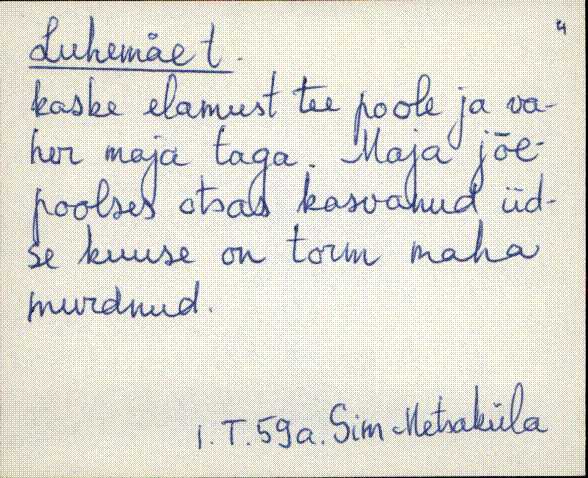 4
Luhemäe t.
kaske elamust tee poole ja va-
her maja taga. Maja jõe-
poolses otsas kasvanud üd-
se kuuse on torm maha
murdnud.
I. T. 59a. Sim Metsaküla